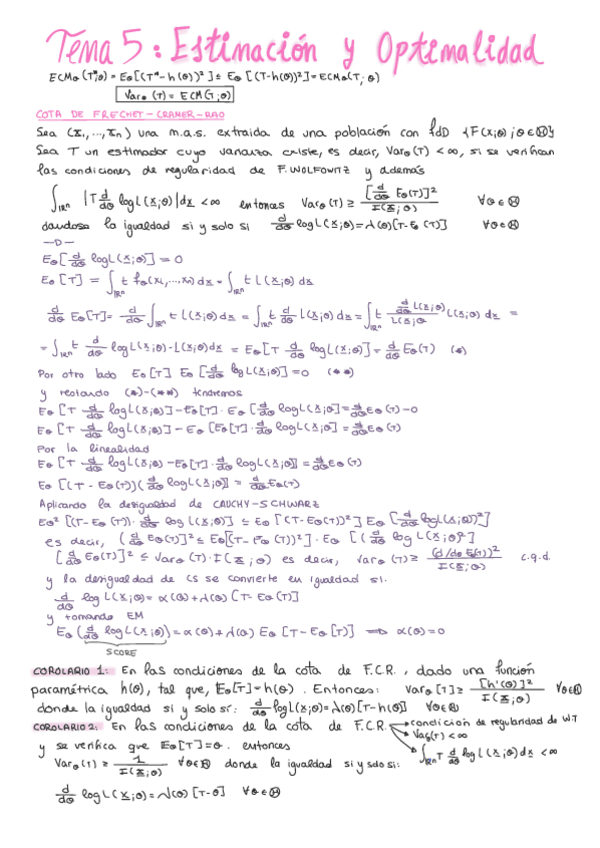 Tema 5: Estimación y Optimalidad
ECMθ(T*;θ) = Eθ[(T*-h(θ))²] ≤ Eθ[(T-h(θ))²] = ECMθ(T;θ)
Varθ(T) = ECM(T;θ)
COTA DE FRECHET-CRAMER-RAO
Sea (x₁,...,xₙ) una m.a.s. extraida de una población con fdD {F(x;θ); θ∈Θ}
Sea T un estimador cuya varianza existe, es decir, Varθ(T) < ∞, si se verifican
las condiciones de regularidad de F.WOLFOWITZ y además
∫_ℝⁿ |T d/dθ logL(x;θ)| dx < ∞ entonces Varθ(T) ≥ [d/dθ Eθ(T)]² / I(x;θ) ∀θ∈Θ
dandose la igualdad si y solo si d/dθ logL(x;θ) = λ(θ)[T-Eθ(T)] ∀θ∈Θ
—D—
Eθ[d/dθ logL(x;θ)] = 0
Eθ[T] = ∫_ℝⁿ t fθ(x₁,...,xₙ) dx = ∫_ℝⁿ t L(x;θ) dx
d/dθ Eθ[T] = d/dθ ∫_ℝⁿ t L(x;θ) dx = ∫_ℝⁿ t d/dθ L(x;θ) dx = ∫_ℝⁿ t (d/dθ L(x;θ)) / L(x;θ) L(x;θ) dx =
= ∫_ℝⁿ t d/dθ logL(x;θ)·L(x;θ) dx = Eθ[T d/dθ logL(x;θ)] = d/dθ Eθ(T) (*)
Por otro lado Eθ[T] Eθ[d/dθ logL(x;θ)] = 0 (**)
y restando (*)-(**) tendremos
Eθ[T d/dθ logL(x;θ)] - Eθ[T]·Eθ[d/dθ logL(x;θ)] = d/dθ Eθ(T) - 0
Eθ[T d/dθ logL(x;θ)] - Eθ[Eθ[T]·d/dθ logL(x;θ)] = d/dθ Eθ(T)
Por la linealidad
Eθ[T d/dθ logL(x;θ) - Eθ[T]·d/dθ logL(x;θ)] = d/dθ Eθ(T)
Eθ[(T - Eθ(T))(d/dθ logL(x;θ)] = d/dθ Eθ(T)
Aplicando la desigualdad de CAUCHY-SCHWARZ
Eθ²[(T-Eθ(T))·d/dθ log L(x;θ)] ≤ Eθ[(T-Eθ(T))²] Eθ[(d/dθ logL(x;θ))²]
es decir, (d/dθ Eθ(T)]² ≤ Eθ[(T-Eθ(T))²]·Eθ[(d/dθ log L(x;θ)²]
[d/dθ Eθ(T)]² ≤ Varθ(T)·I(x;θ) es decir, varθ(T) ≥ (d/dθ Eθ(T))² / I(x;θ) c.q.d.
y la desigualdad de CS se convierte en igualdad si:
d/dθ log L(x;θ) = α(θ) + λ(θ)[T-Eθ(T)]
y tomando EM
Eθ(d/dθ log L(x;θ)) = α(θ) + λ(θ) Eθ[T-Eθ[T)] ⟹ α(θ) = 0
SCORE
COROLARIO 1: En las condiciones de la cota de F.C.R., dado una función
paramétrica h(θ), tal que, Eθ[T] = h(θ). Entonces: Varθ[T] ≥ [h'(θ)]² / I(x;θ) ∀θ∈Θ
donde la igualdad si y solo si: d/dθ logL(x;θ) = λ(θ)[T-h(θ)] ∀θ∈Θ
COROLARIO 2: En las condiciones de la cota de F.C.R. → condición de regularidad de W.T
→ Varθ(T) < ∞
→ ∫_ℝⁿ T d/dθ log L(x;θ) dx < ∞
y se verifica que Eθ[T] = θ. entonces
Varθ(T) ≥ 1 / I(x;θ) ∀θ∈Θ donde la igualdad si y solo si:
d/dθ log L(x;θ) = λ(θ)[T-θ] ∀θ∈Θ